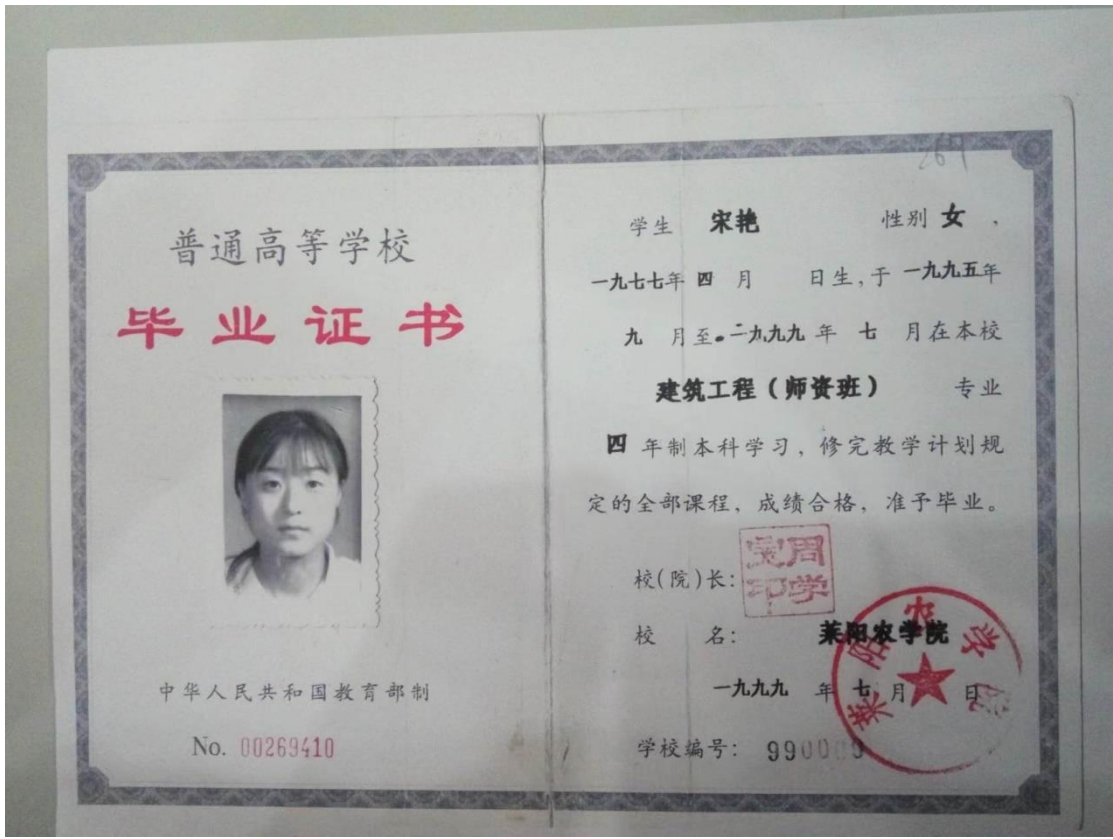 普通高等学校
毕业证书
中华人民共和国教育部制
No. 00269410
267
学生 宋艳 性别 女,
一九七七年 四 月 日生,于 一九九五年
九 月至 一九九九 年 七 月在本校
建筑工程(师资班) 专业
四 年制本科学习,修完教学计划规
定的全部课程,成绩合格,准予毕业。
校(院)长:
校 名: 莱阳农学院
莱阳农学院
一九九九 年 七 月 日
学校编号: